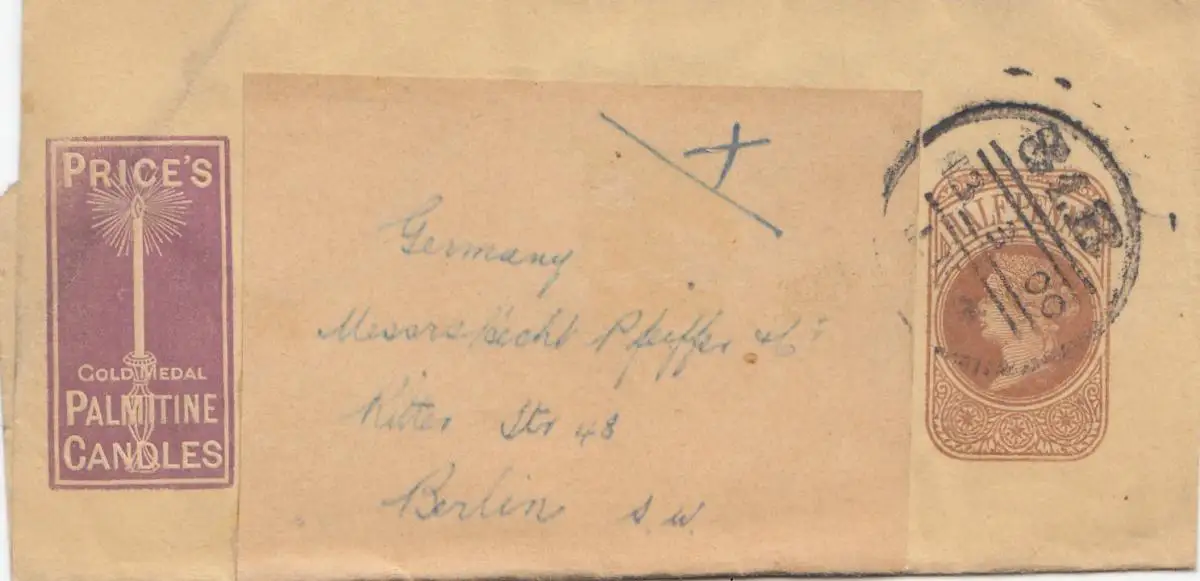 PRICE'S
GOLD MEDAL
PALMITINE
CANDLES
Germany
Messrs Specht Pfeiffer & Co
Ritter Str 48
Berlin S. W.
HALFPENNY